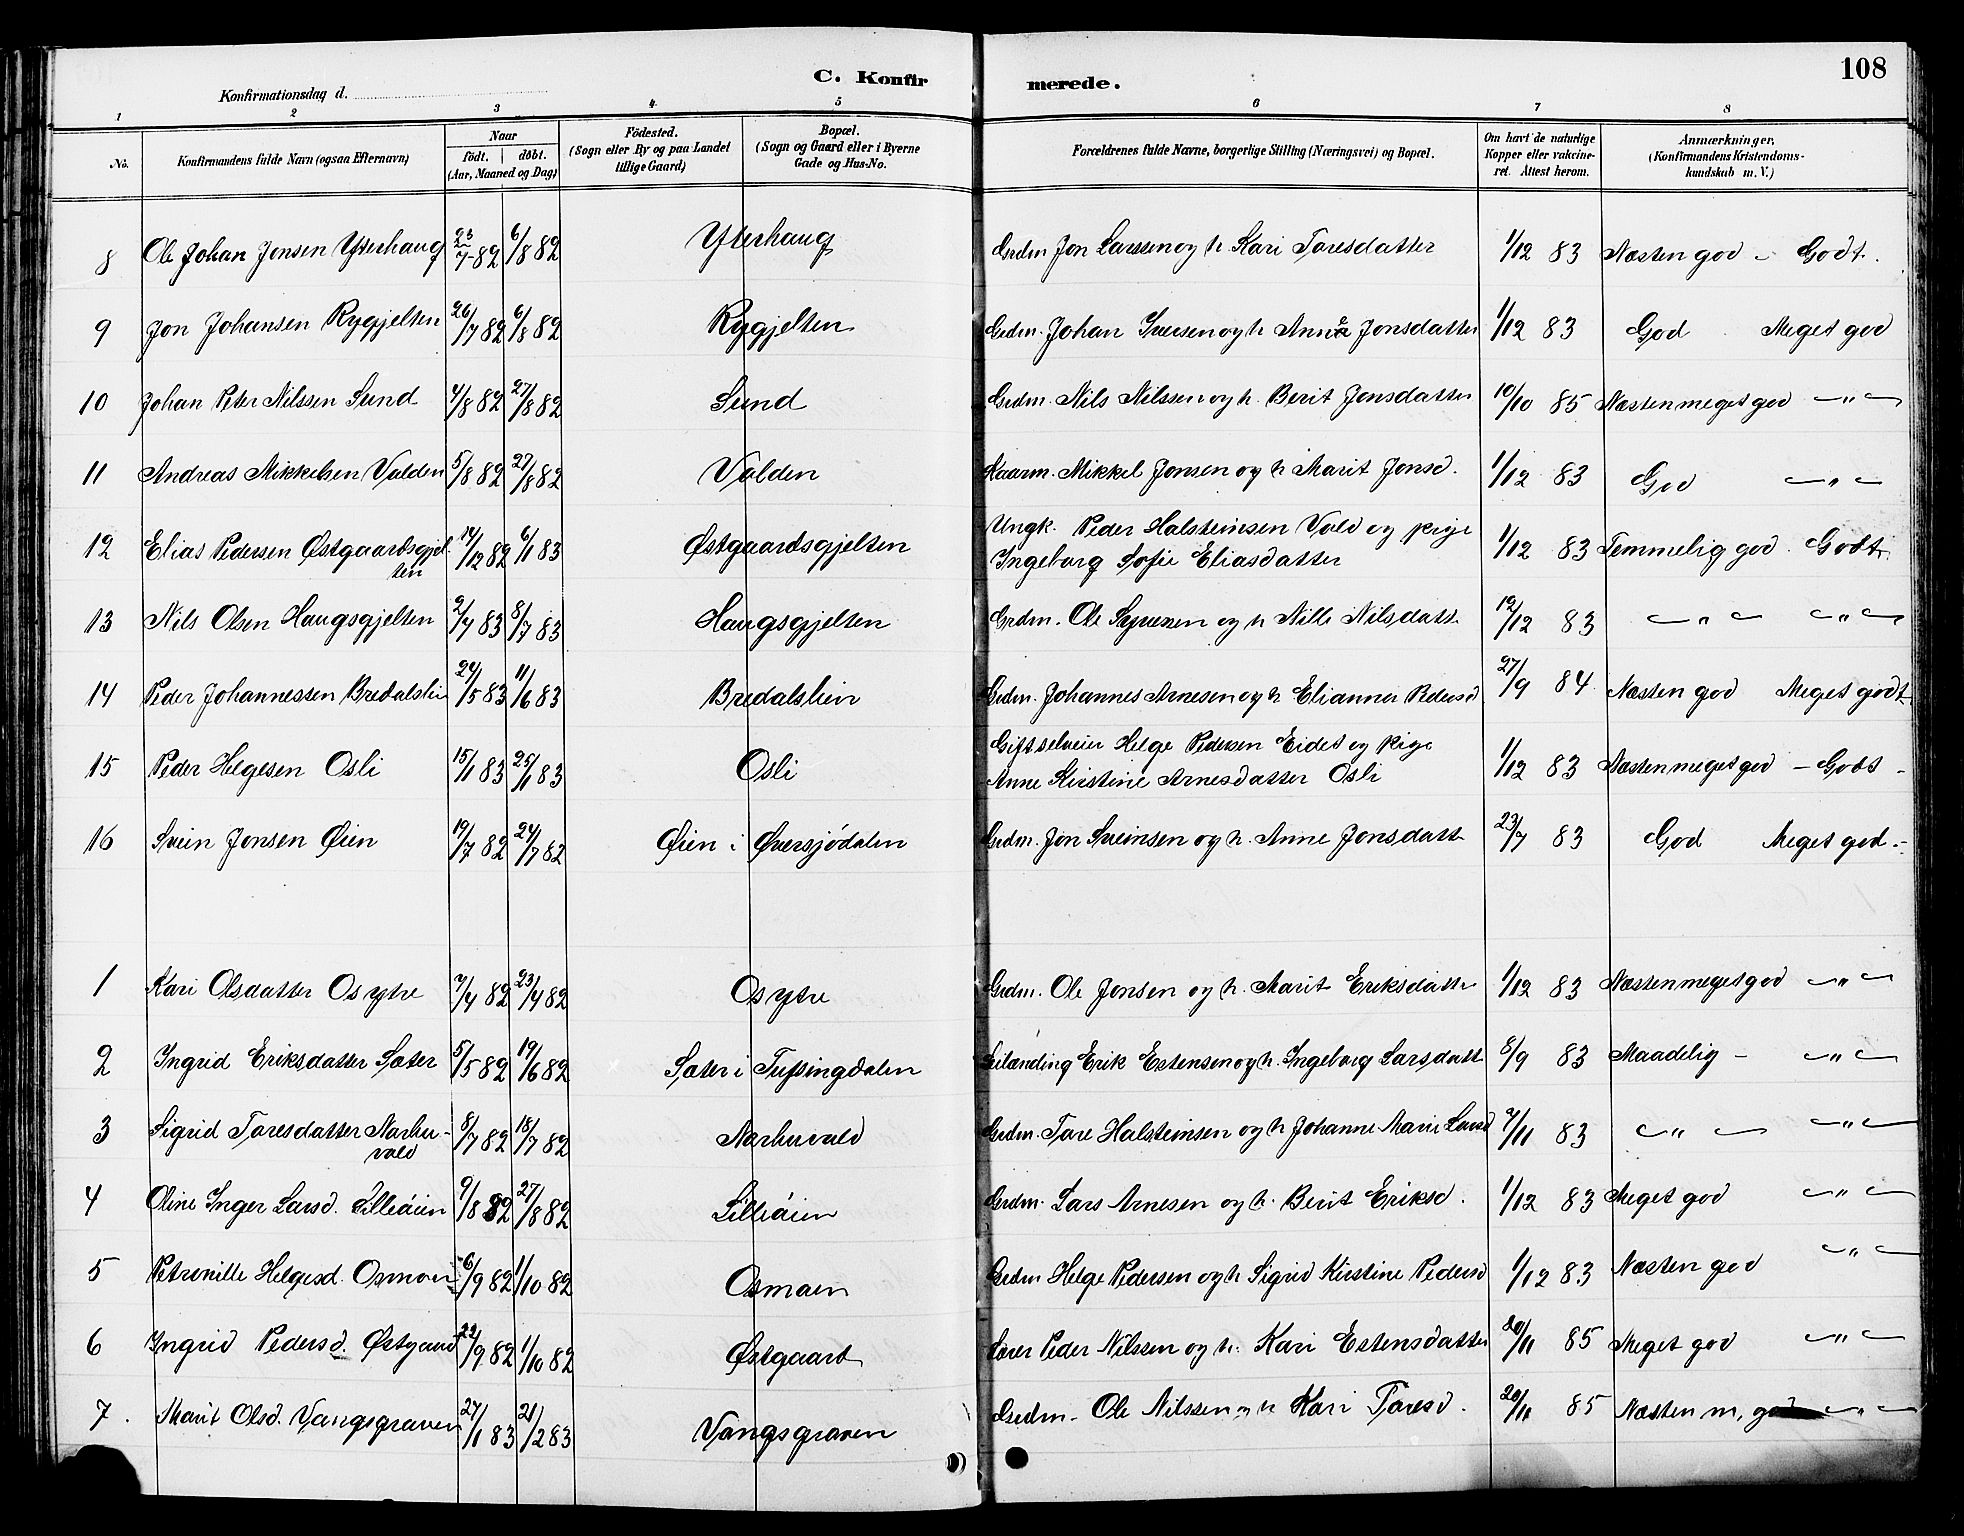 108
C. Konfirmerede.
Konfirmationsdag d.
1 2 3 4 5 6 7 8
No. Konfirmandens fulde Navn (ogsaa Efternavn) Naar født. døbt. (Aar, Maaned og Dag) Födested. (Sogn eller By og paa Landet tillige Gaard) Bopæl. (Sogn og Gaard eller i Byerne Gade og Hus-No. Forældrenes fulde Navne, borgerlige Stilling (Næringsvei) og Bopæl. Om havt de naturlige Kopper eller vakcineret. Attest herom. Anmærkninger. (Konfirmandens Kristendomskundskab m. V.)
8 Ole Johan Jonsen Ytterhaug 23/7 82 6/8 82 Ytterhaug Grdm Jon Larssen og h. Kari Toresdatter 1/12 83 Næsten god - Godt.
9 Jon Johansen Rygjelten 26/7 82 6/8 82 Rygjelten Grdm. Johan Iversen og h Anna Jonsdatter 1/12 83 God Meget god
10 Johan Peter Nilssen Sund 4/8 82 27/8 82 Sund Grdm. Nils Nilssen og h. Berit Jonsdatter 10/10 85 Næsten meget god — „ —
11 Andreas Mikkelsen Volden 5/8 82 27/8 82 Volden Kaarm. Mikkel Jonsen og h Marit Jonsd. 1/12 83 God — „ —
12 Elias Pedersen Østgaardsgjelten 14/12 82 6/1 83 Østgaardsgjelten Ungk. Peder Halsteinsen Vold og pige
Ingeborg Sofie Eliasdatter 1/12 83 Temmelig god. Godt
13 Nils Olsen Haugsgjelten 2/7 83 8/7 83 Haugsgjelten Grdm. Ole Syversen og h Nille Nilsdatt 12/12 83 — „ — — „ —
14 Peder Johannessen Bredalslien 24/5 83 11/6 83 Bredalslien Grdm. Johannes Arnesen og h Elianna Pedersd 27/9 84 Næsten god Meget godt
15 Peder Helgesen Osli 15/1 83 25/1 83 Osli Gift selveier Helge Pedersen Eidet og Pige
Anne Kirstine Arnesdatter Osli 1/12 83 Næsten meget god - Godt -
16 Svein Jonsen Øien 19/7 82 24/7 82 Øien i Øversjødalen Grdm. Jon Sveinsen og h. Anne Jonsdatt 23/7 83 God Meget god. -
1 Kari Olsdatter Os ytre 7/4 82 23/4 82 Os ytre Grdm. Ole Jonsen og h. Marit Eriksdatter 1/12 83 Næsten meget god — „ —
2 Ingrid Eriksdatter Sæter 5/5 82 19/6 82 Sæter i Tufsingdalen Leilænding Erik Estensen og h. Ingeborg Larsdatt 8/9 83 Maadelig - — „ —
3 Sigrid Toresdatter Narbuvold 8/7 82 18/7 82 Narbuvold Grdm. Tore Halsteinsen og h Johanne Marie Larsd 7/11 83 — „ — — „ —
4 Oline Inger Larsd. Lilleöien 9/8 82 27/8 82 Lilleöien Grdm. Lars Arnesen og h. Berit Eriksd. 1/12 83 Meget god — „ —
5 Petronille Helgesd. Osmoen 6/9 82 1/10 82 Osmoen Grdm Helge Pedersen og h Sigrid Kirstine Pedersd 1/12 83 Næsten god — „ —
6 Ingrid Pedersd. Østgaard 22/9 82 1/10 82 Østgaard Lærer Peder Nilssen og h. Kari Estensdatter 20/11 85 Meget god — „ —
7. Marit Olsd. Vangsgraven 27/1 83 21/2 83 Vangsgraven Grdm. Ole Nilssen og h Kari Toresd. 20/11 85 Næsten m. god — „ —